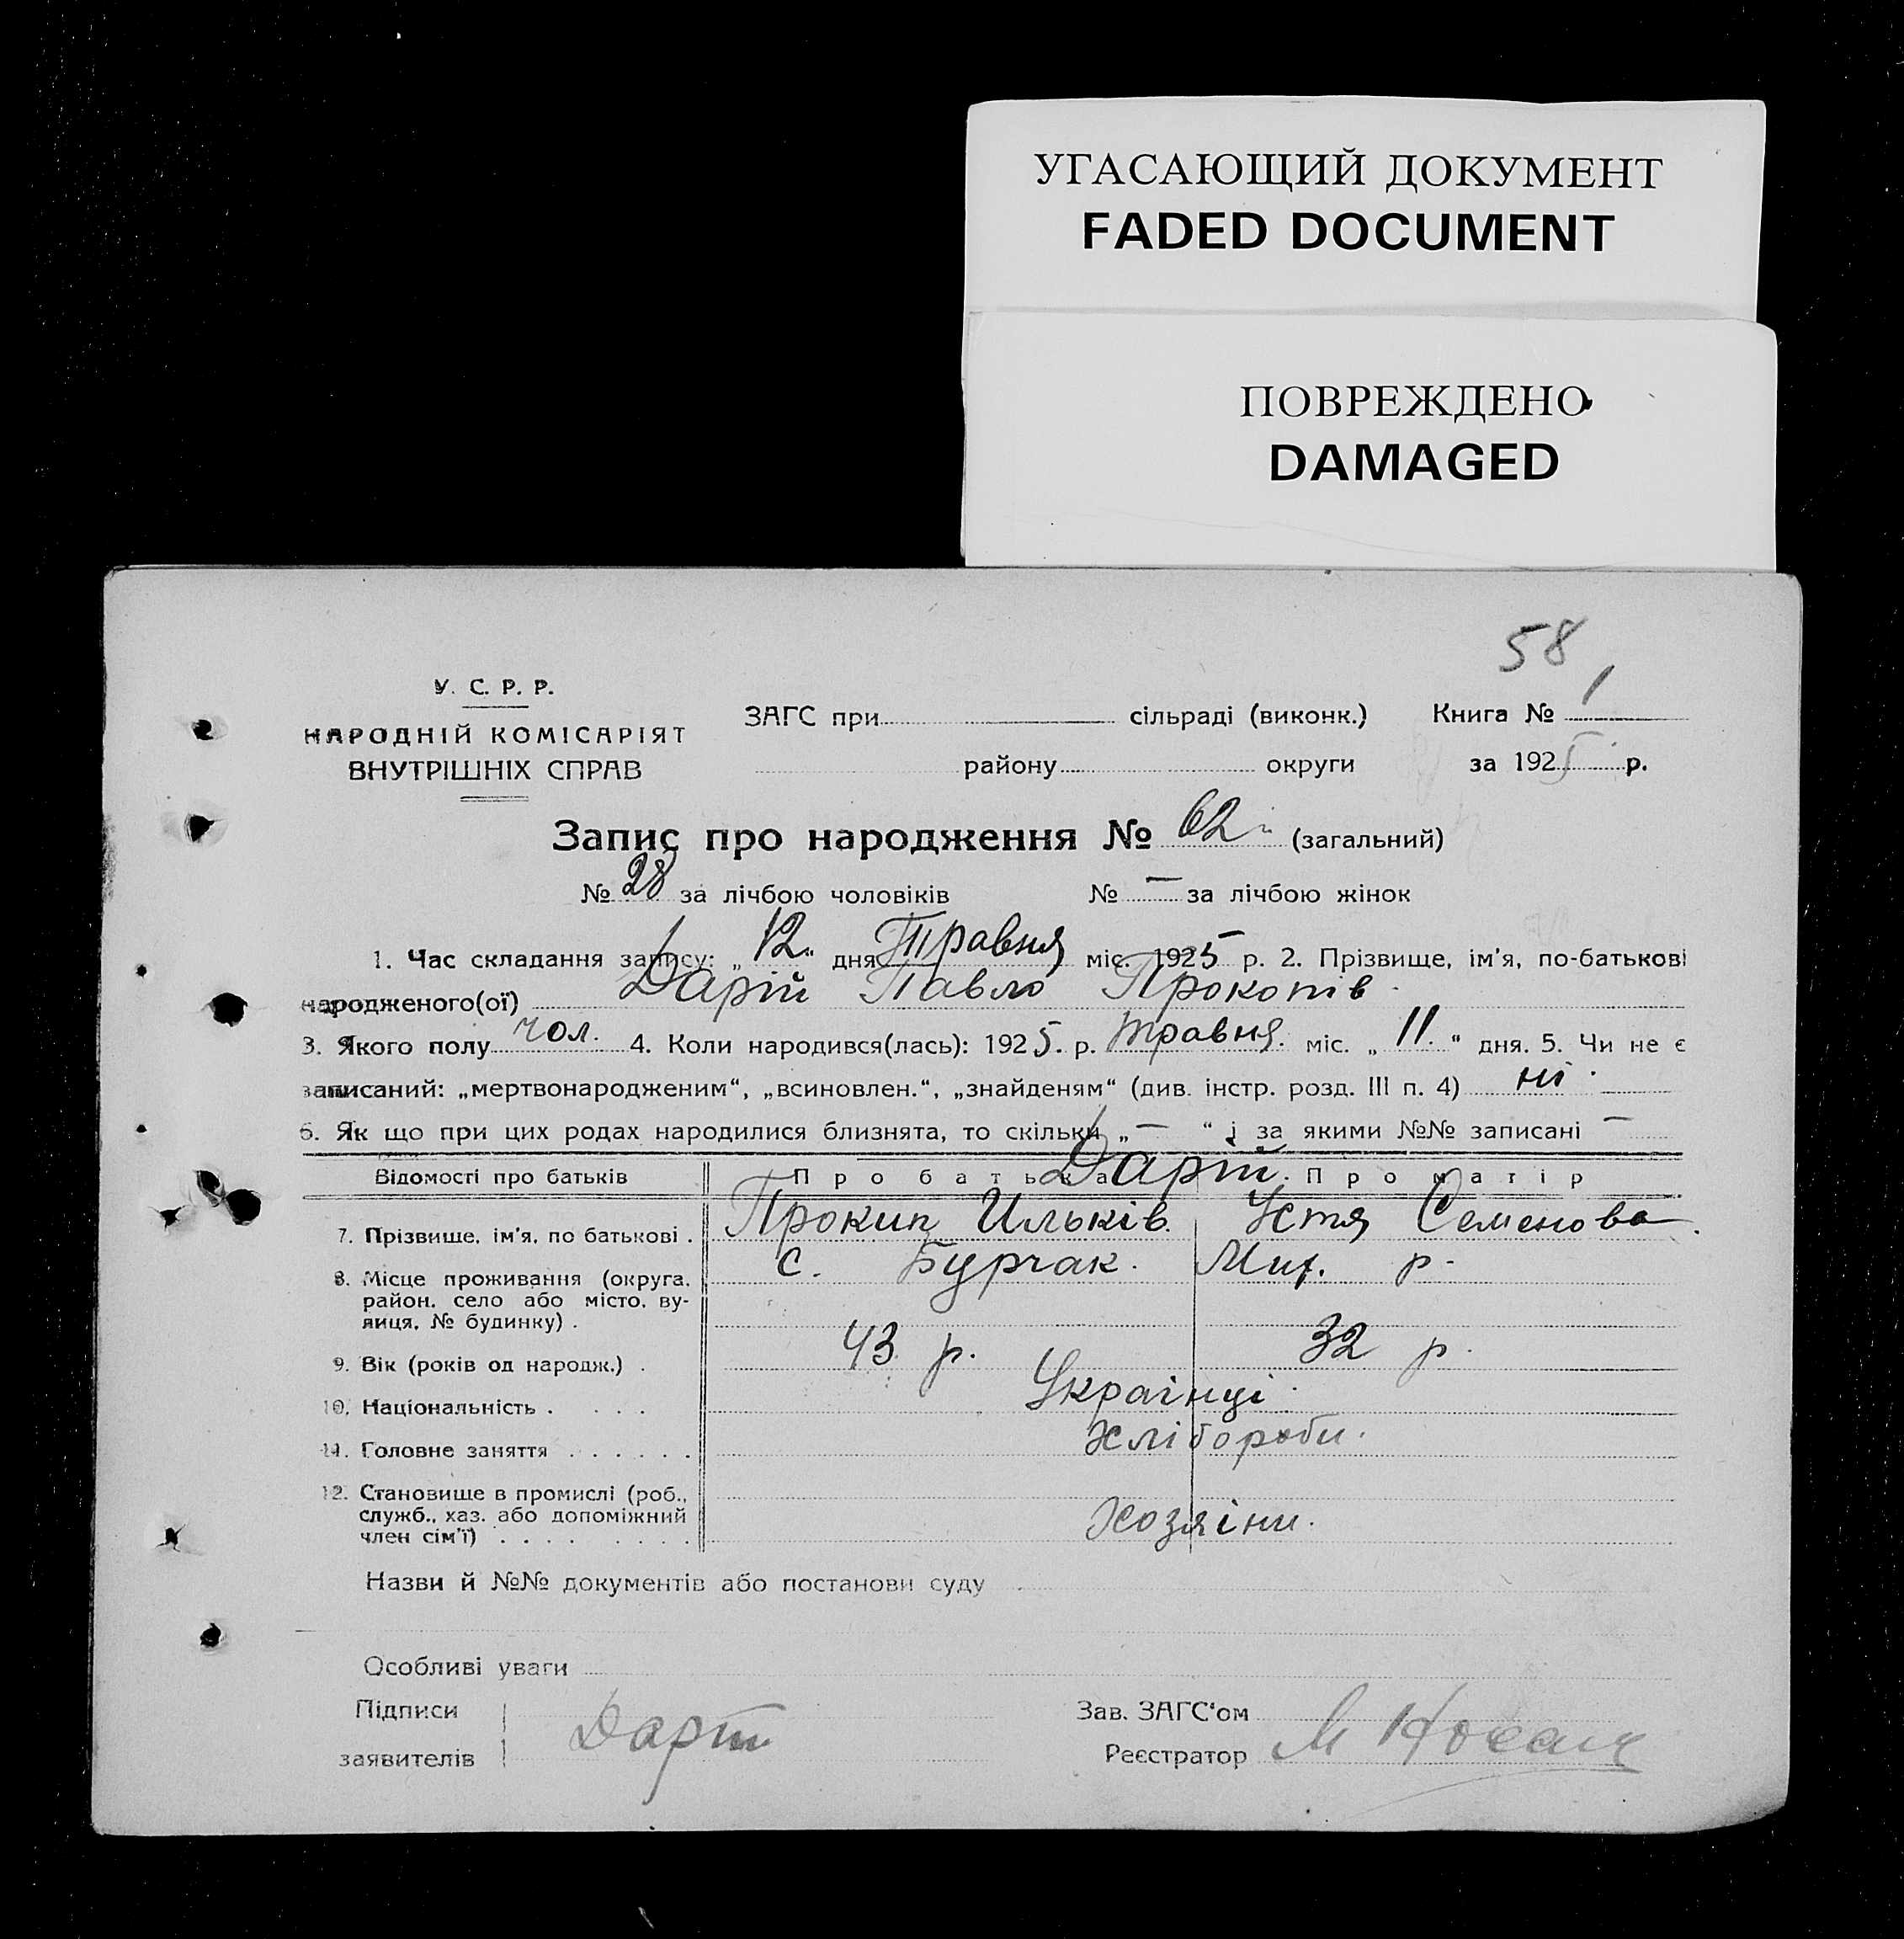 УГАСАЮЩИЙ ДОКУМЕНТ
FADED DOCUMENT
ПОВРЕЖДЕНО
DAMAGED
58
У. С. Р. Р.
НАРОДНІЙ КОМІСАРІЯТ
ВНУТРІШНІХ СПРАВ
ЗАГС при сільраді (виконк.) Книга № 1
району округи за 1925 р.
Запис про народження № 62 (загальний)
№ 28 за лічбою чоловіків № — за лічбою жінок
1. Час складання запису: „12“ дня Травня міс. 1925 р. 2. Прізвище, ім'я, по-батькові
народженого(ої) Дарій Павло Прокопів
3. Якого полу чол. 4. Коли народився(лась): 1925. р. травня. міс. „11.“ дня. 5. Чи не є
записаний: „мертвонародженим“, „всиновлен.“, „знайденям“ (див. інстр. розд. III п. 4) ні
6. Як що при цих родах народилися близнята, то скільки „—“ і за якими №№ записані —
Відомості про батьків Про батька Про матір
Дарій
7. Прізвище, ім'я, по батькові . Прокип Ильків. Устя Семенова
8. Місце проживання (округа, район, село або місто, вулиця, № будинку) . с. Бурчак. Мих. р.
9. Вік (років од народж.) . 43 р. 32 р.
10. Національність . . . . Украінці
11. Головне заняття . . . . . . Хлібороби.
12. Становище в промислі (роб., служб., хаз. або допоміжний член сім'ї) . . . . . . . . Хозяіни.
Назви й №№ документів або постанови суду
Особливі уваги
Підписи заявителів Дарій
Зав. ЗАГС'ом
Реєстратор М